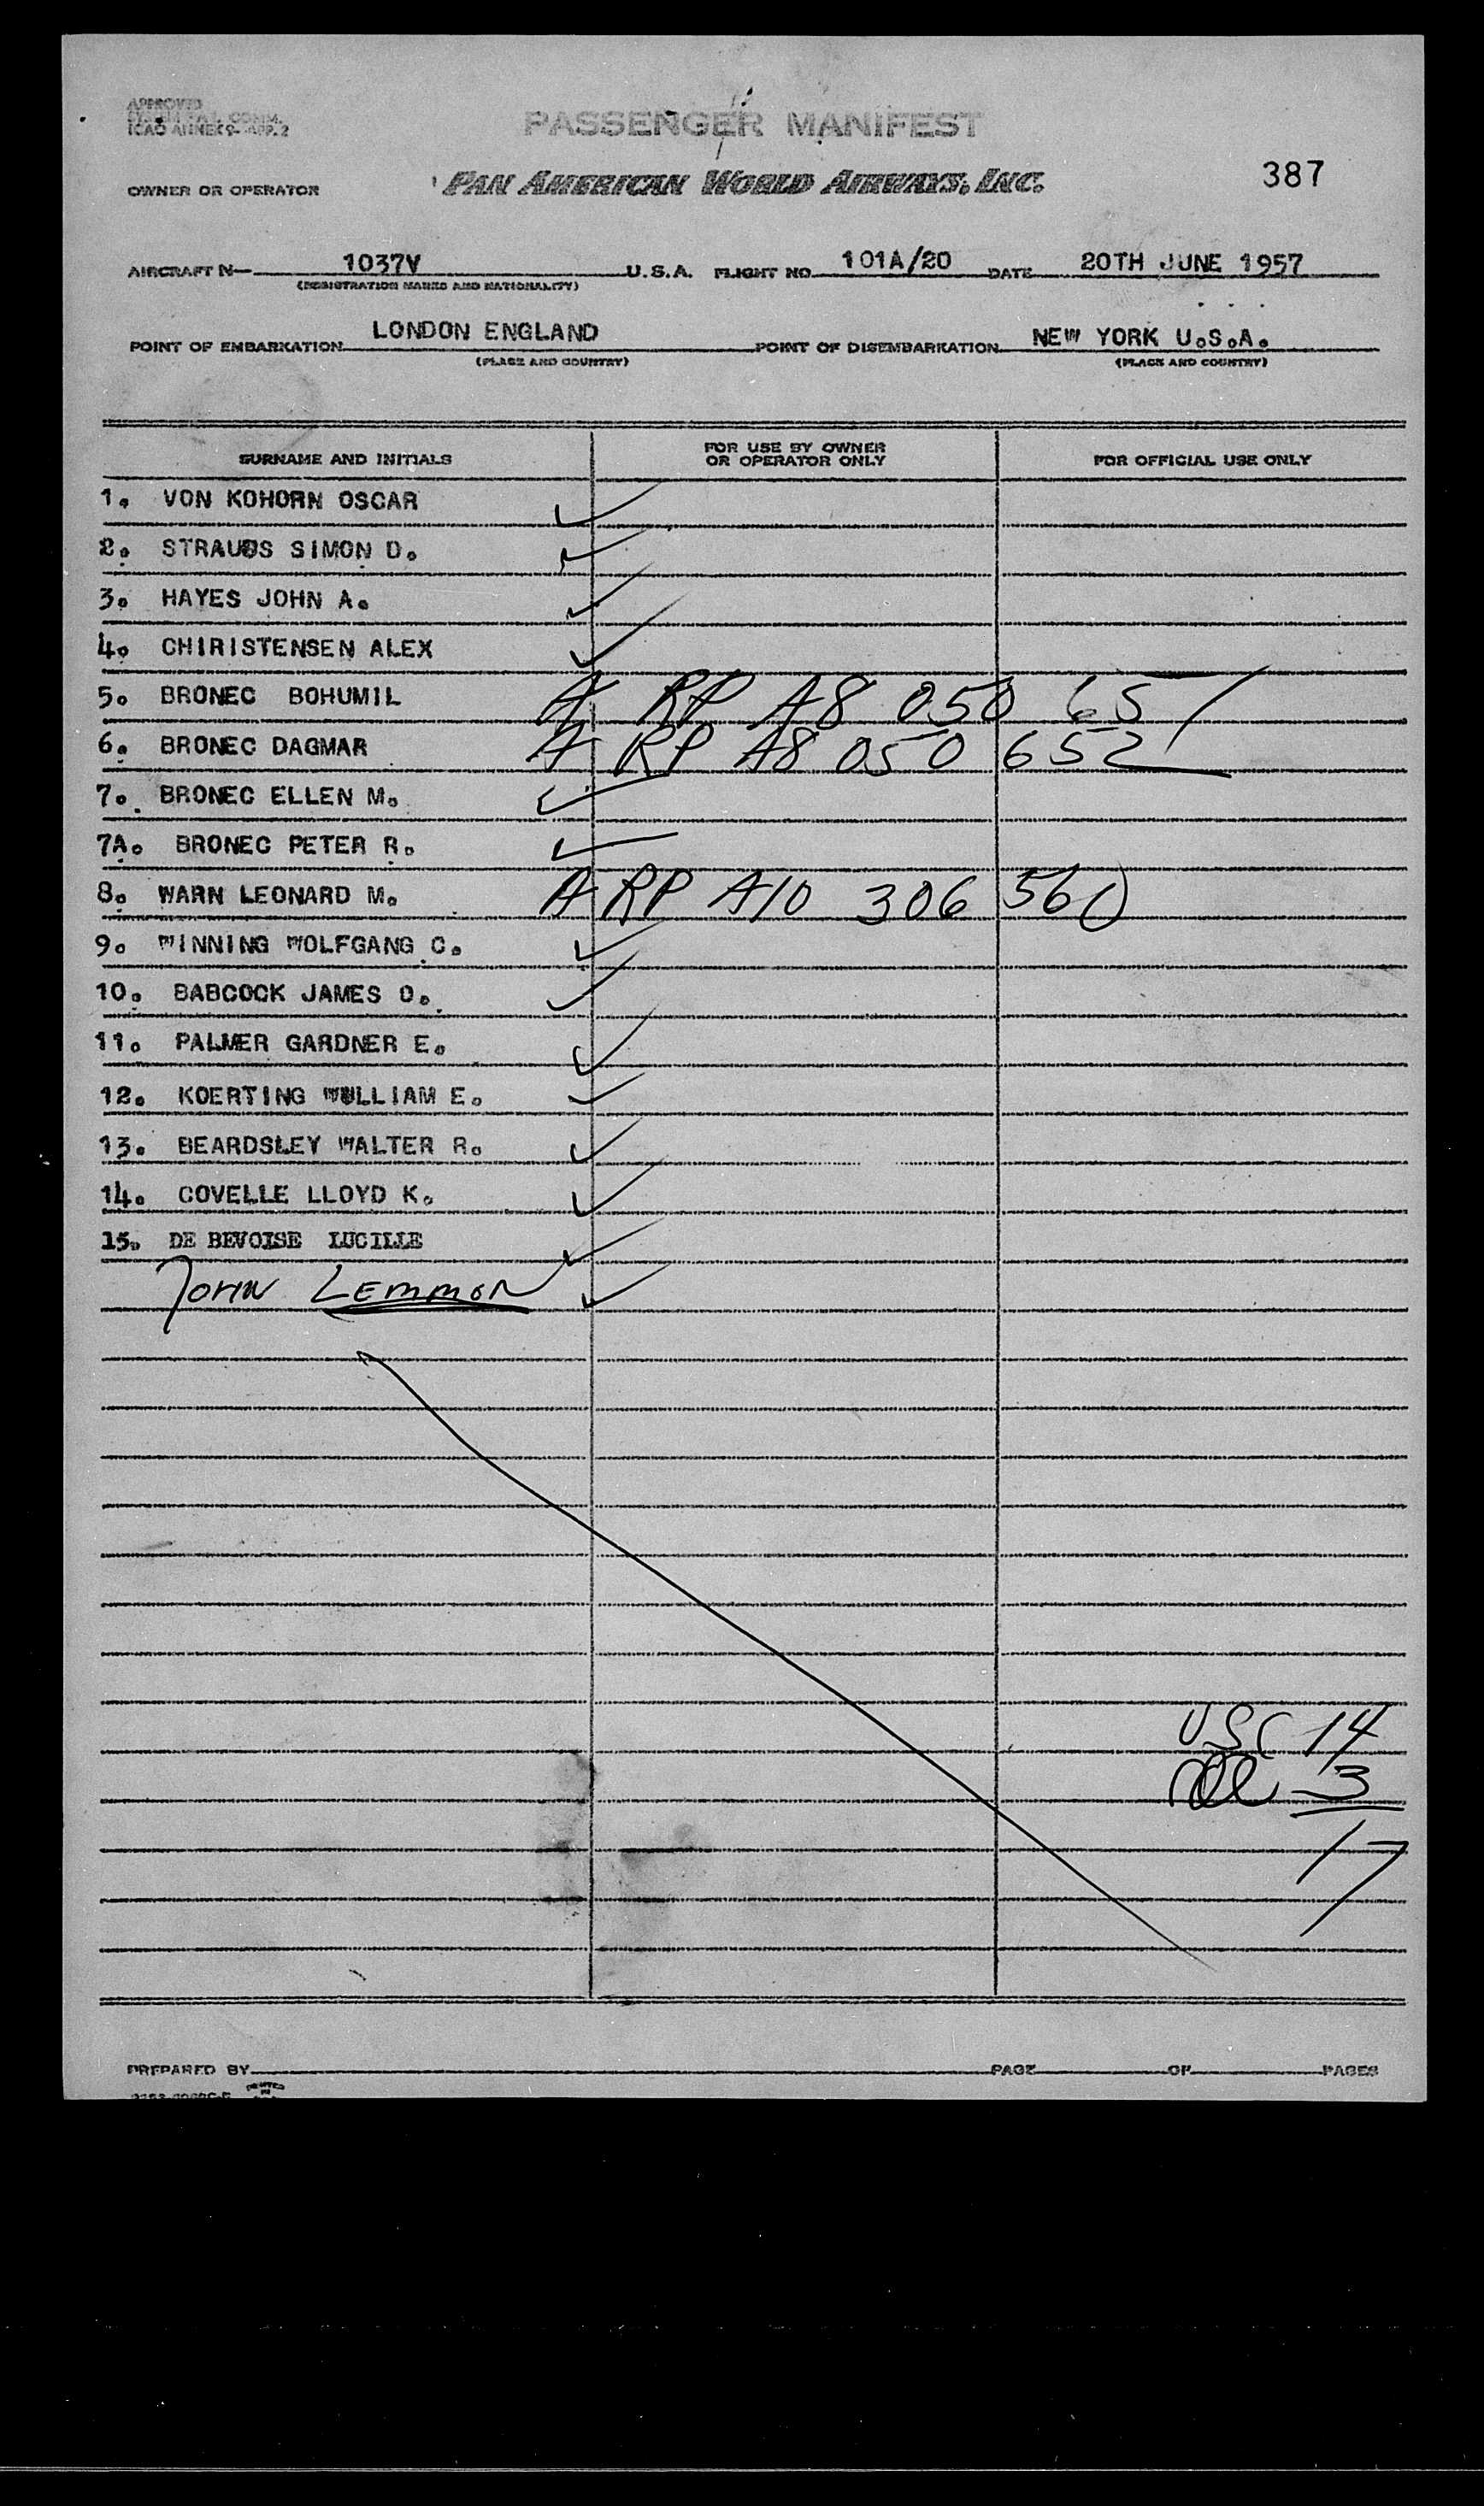 APPROVED
ICAO ANNEX 9-APP. 2
PASSENGER MANIFEST
387
OWNER OR OPERATOR PAN AMERICAN WORLD AIRWAYS, INC.
AIRCRAFT N— 1037V U.S.A. FLIGHT NO. 101A/20 DATE 20TH JUNE 1957
(REGISTRATION MARKS AND NATIONALITY)
POINT OF EMBARKATION LONDON ENGLAND POINT OF DISEMBARKATION NEW YORK U.S.A.
(PLACE AND COUNTRY) (PLACE AND COUNTRY)
SURNAME AND INITIALS FOR USE BY OWNER OR OPERATOR ONLY FOR OFFICIAL USE ONLY
1. VON KOHORN OSCAR
2. STRAUSS SIMON D.
3. HAYES JOHN A.
4. CHIRISTENSEN ALEX
5. BRONEC BOHUMIL A RP A8 050 651
6. BRONEC DAGMAR A RP A8 050 652
7. BRONEC ELLEN M.
7A. BRONEC PETER R.
8. WARN LEONARD M. A RP A10 306 560
9. WINNING WOLFGANG C.
10. BABCOCK JAMES O.
11. PALMER GARDNER E.
12. KOERTING WULLIAM E.
13. BEARDSLEY WALTER R.
14. COVELLE LLOYD K.
15. DE BEVOISE LUCILLE
JOHN LEMMON
USC 14
3
17
PREPARED BY PAGE OF PAGES